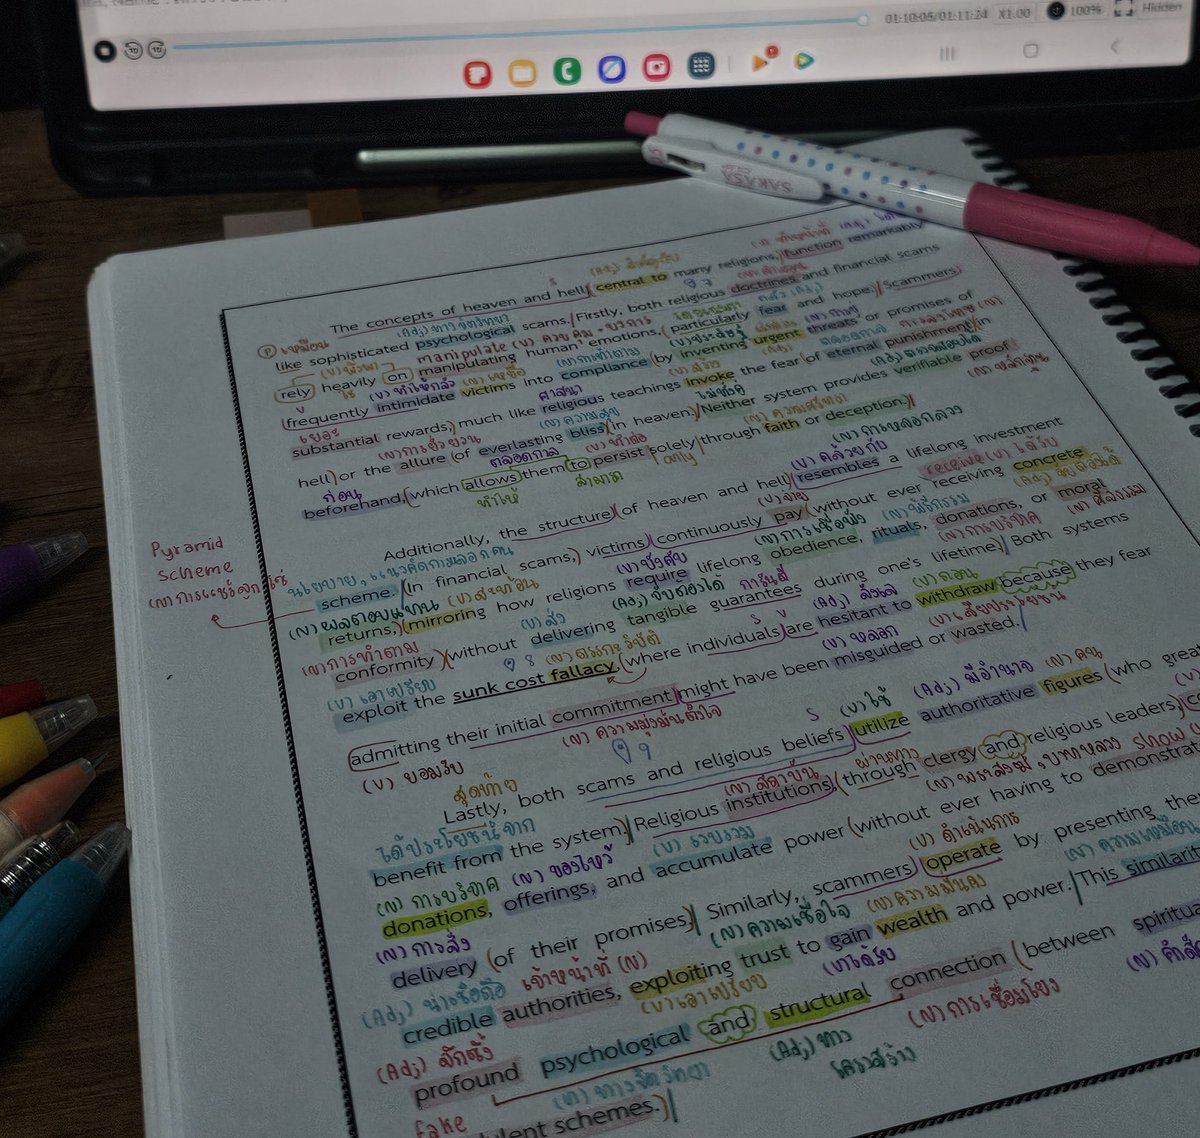 01:10:05/01:11:24 X1.00 100% Hidden
SAKASA
(V) ทำหน้าที่ (Adj)
(Adj) สำคัญ
The concepts of heaven and hell central to many religions, function remarkably
P เหมือน (Adj) ทางจิตวิทยา
like sophisticated psychological scams. Firstly, both religious doctrines and financial scams
manipulate (V) ควบคุม
rely heavily on manipulating human emotions, particularly fear and hope. Scammers
(V) ทำให้กลัว (N) เหยื่อ (N) การทำตาม
frequently intimidate victims into compliance by inventing urgent threats or promises of
เยอะ ศาสนา
substantial rewards, much like religious teachings invoke the fear of eternal punishment in
(N) การยั่วยวน ตลอดกาล (N) ความสุข
hell or the allure of everlasting bliss in heaven. Neither system provides verifiable proof
ก่อน (N) หลักฐาน
beforehand, which allows them to persist solely through faith or deception.
ทำให้ สามารถ only (N) ความศรัทธา (N) การหลอกลวง
(V) คล้ายกับ
Additionally, the structure of heaven and hell resembles a lifelong investment
Pyramid
scheme
(V) จ่าย receive (V) ได้รับ
scheme. In financial scams, victims continuously pay without ever receiving concrete
(N) ผลตอบแทน (V) สะท้อน (V) บังคับ (N) การเชื่อฟัง (N) พิธีกรรม (N) การบริจาค (N) ศีลธรรม
returns, mirroring how religions require lifelong obedience, rituals, donations, or moral
(N) การทำตาม (V) ส่ง (Adj) จับต้องได้ การันตี
conformity without delivering tangible guarantees during one's lifetime. Both systems
(V) เอาเปรียบ (Adj) ลังเล (V) ถอน
exploit the sunk cost fallacy, where individuals are hesitant to withdraw because they fear
(V) หลอก
admitting their initial commitment might have been misguided or wasted.
(V) ยอมรับ (N) ความมุ่งมั่นตั้งใจ
สุดท้าย (V) ใช้ (Adj) มีอำนาจ (N) คน
Lastly, both scams and religious beliefs utilize authoritative figures who
ได้ประโยชน์จาก (N) สถาบัน ผ่านทาง
benefit from the system. Religious institutions, through clergy and religious leaders,
(N) การบริจาค (N) ของไหว้ (V) รวบรวม show
donations, offerings, and accumulate power without ever having to
(N) การส่ง (V) ดำเนินการ
delivery of their promises. Similarly, scammers operate by presenting
(Adj) น่าเชื่อถือ เจ้าหน้าที่ (N) (N) ความเชื่อใจ (N) ความมั่นคง
credible authorities, exploiting trust to gain wealth and power. This
(V) เอาเปรียบ (V) ได้รับ
(Adj) ลึกซึ้ง
profound psychological and structural connection between
ทางจิตวิทยา (Adj) ทางโครงสร้าง (N) การเชื่อมโยง
fake
schemes.